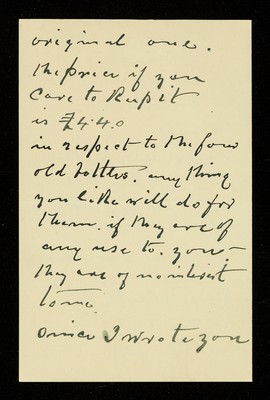 original one.
the price if you
care to keep it
is £4.4.0
in respect to the four
old letters. any thing
you like will do for
them. if they are of
any use to. you –
they are of no interest
to me.
Since I wrote you